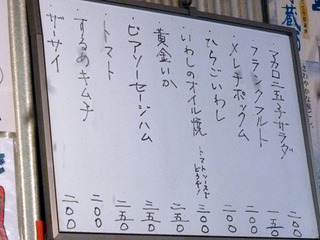 マカロニ玉子サラダ 二〇〇
フランクフルト 一五〇
メレチポックム 二〇〇
ひらごいわし 二〇〇
いわしのオイル焼 トマトソースでどうぞ! 三〇〇
黄金いか 二五〇
ビアソーセージハム 二五〇
トマト 二五〇
するめキムチ 二〇〇
ザーサイ 二〇〇